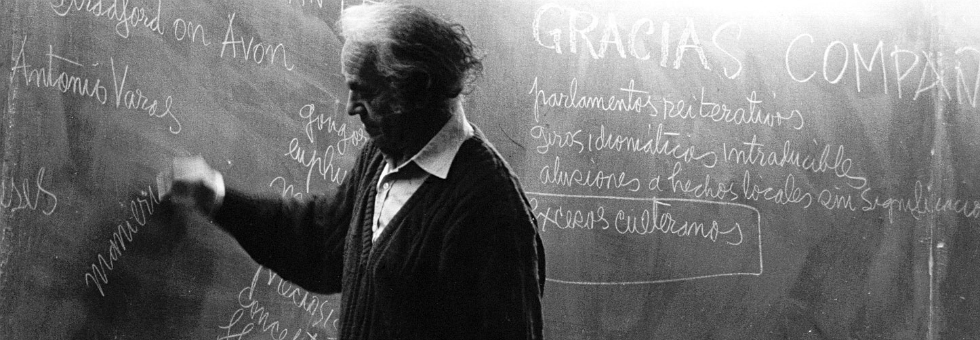 on Avon
Antonio
ses
manieri
gongo
euphu
GRACIAS COMPAÑ
parlamentos reiterativos
giros idiomáticos intraducibles
alusiones a hechos locales sin significac
excesos culteranos